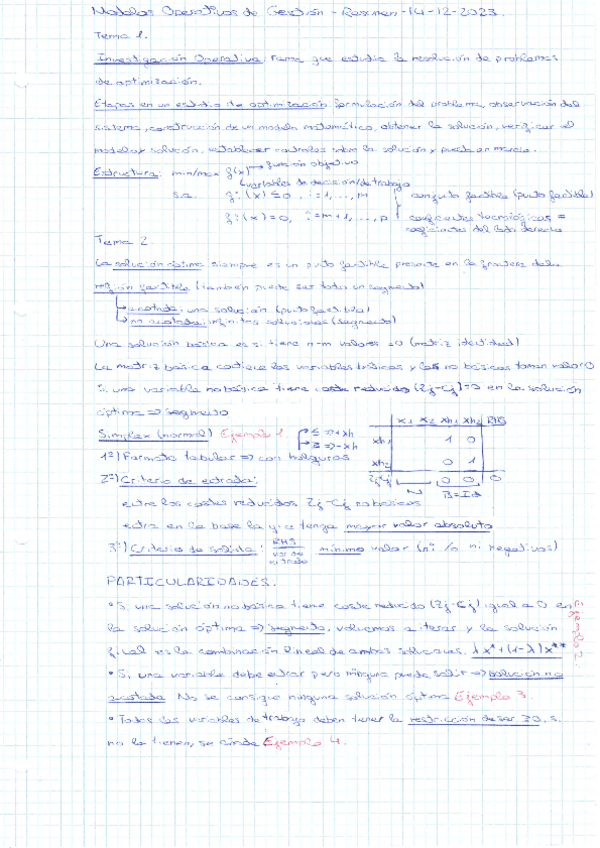 Modelos Operativos de Gestión - Resumen - 14-12-2023.
Tema 1.
Investigación Operativa: rama que estudia la resolución de problemas
de optimización.
Etapas en un estudio de optimización: formulación del problema, observación del
sistema, construcción de un modelo matemático, obtener la solución, verificar el
modelo y solución, establecer controles sobre la solución y puesta en marcha.
Estructura: min/max f(x) → función objetivo
↳ variables de decisión/de trabajo
s.a. gi(x) ≤ 0, i=1,...,m conjunto factible (punto factible)
gi(x) = 0, i=m+1,...,p coeficientes tecnológicos =
coeficientes del lado derecho
Tema 2.
La solución óptima siempre es un punto factible presente en la frontera de la
región factible (también puede ser todo un segmento)
↳ acotada: una solución (punto factible)
↳ no acotada: infinitas soluciones (segmento)
Una solución básica es si tiene n-m valores = 0 (matriz identidad)
La matriz básica contiene las variables básicas y las no básicas toman valor 0
Si una variable no básica tiene coste reducido (Zj-Cj)=0 en la solución
óptima => segmento
Simplex (normal) Ejemplo 1. ≤ => +xh
≥ => -xh
x1 x2 xh1 xh2 RHS
xh1 1 0
xh2 0 1
Zj-Cj 0 0 0
N B=Id
1º) Formato tabular => con holguras
2º) Criterio de entrada:
entre los costes reducidos Zj-Cj no básicos
entra en la base la que tenga mayor valor absoluto
3º) Criterio de salida: RHS / var de entrada mínimo valor (ni 0 ni negativos)
PARTICULARIDADES.
• Si una solución no básica tiene coste reducido (Zj-Cj) igual a 0 en
la solución óptima => segmento, volvemos a iterar y la solución
final es la combinación lineal de ambas soluciones. λx*+(1-λ)x**
Ejemplo 2.
• Si una variable debe entrar pero ninguna puede salir => solución no
acotada. No se consigue ninguna solución óptima Ejemplo 3.
• Todas las variables de trabajo deben tener la restricción de ser ≥0, si
no la tienen, se Ejemplo 4.